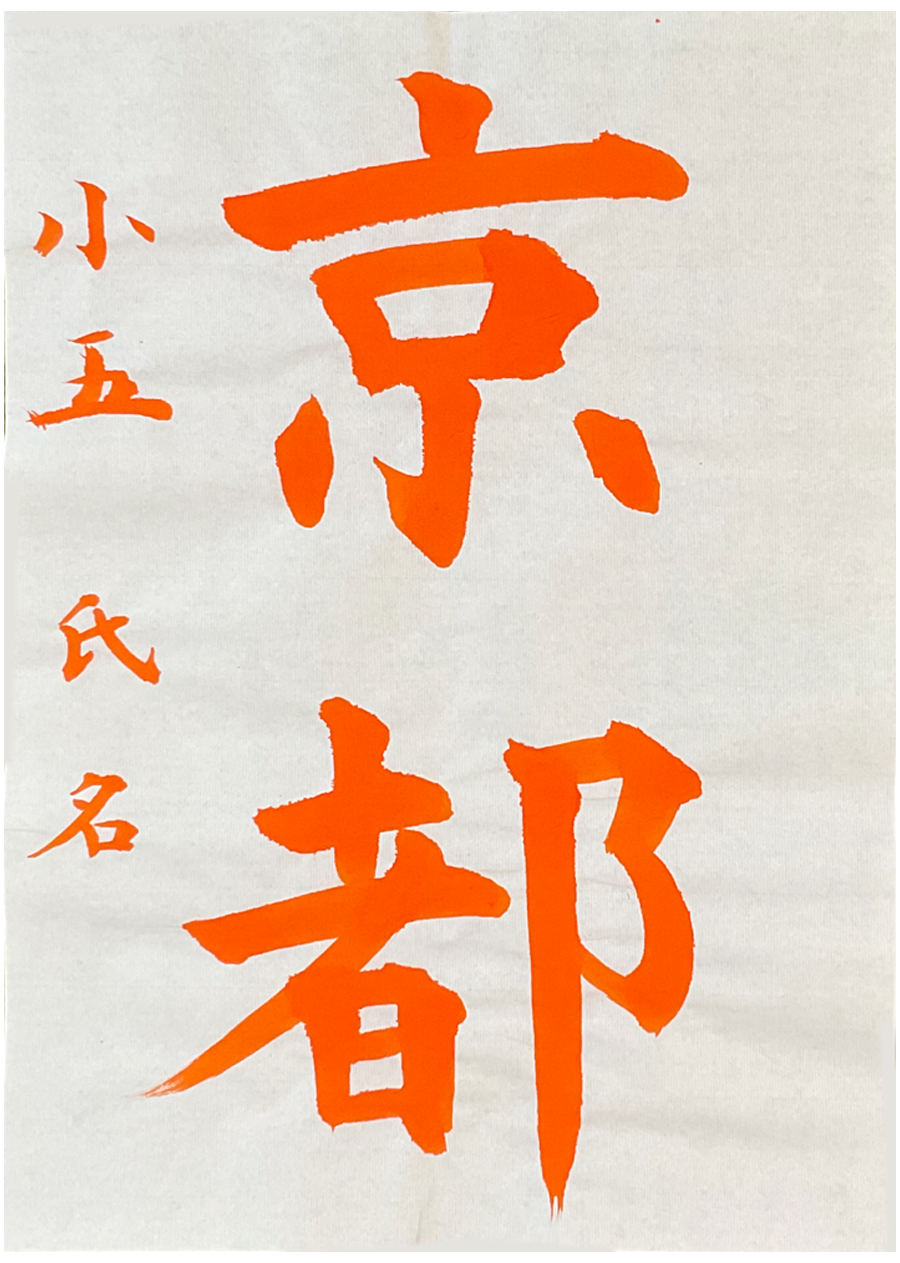 京都
小五 氏名